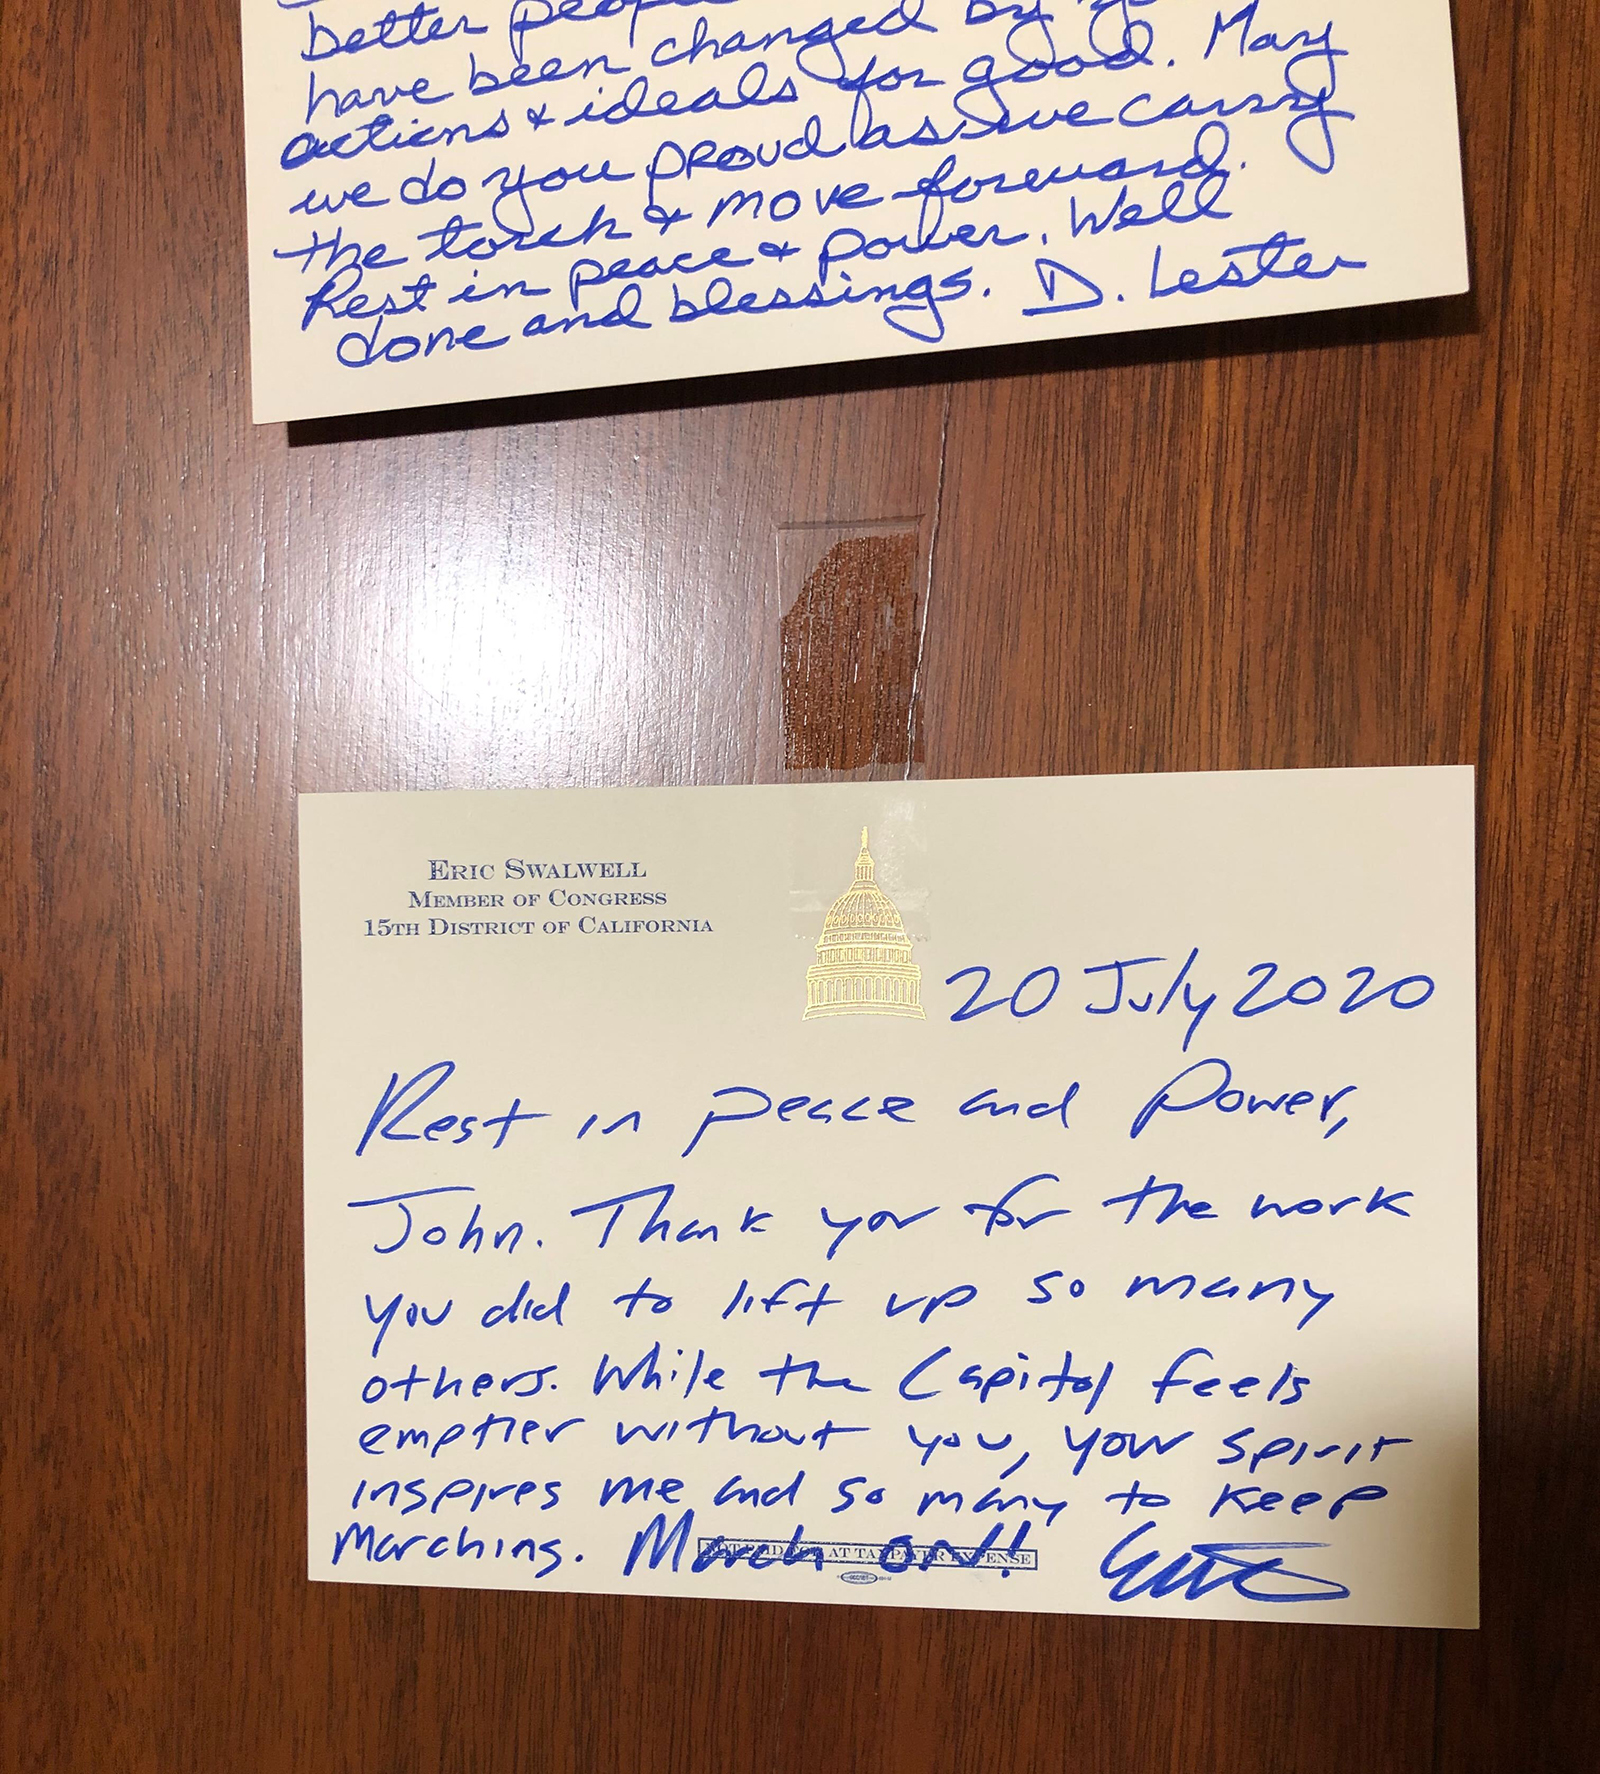 better people
have been changed by
actions & ideals for good. May
we do you proud as we carry
the torch & move forward.
Rest in peace & power. Well
done and blessings. D. Lester
ERIC SWALWELL
MEMBER OF CONGRESS
15TH DISTRICT OF CALIFORNIA
20 July 2020
Rest in peace and power,
John. Thank you for the work
you did to lift up so many
others. While the Capitol feels
emptier without you, your spirit
inspires me and so many to keep
marching. March on! Eric
NOT PAID FOR AT TAXPAYER EXPENSE